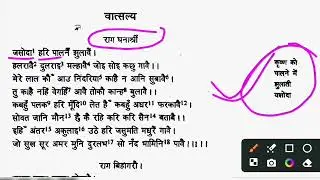 वात्सल्य
राग घनाश्री
जसोदा¹ हरि पालनैं झुलावै।
हलरावै² दुलराइ³ मल्हावै⁴ जोइ सोइ कछु गावै।।
मेरे लाल कौं⁵ आउ निंदरिया⁶ काहैं न आनि सुवावै⁷।
तु काहैं नहिं वेगहिं⁸ आवै तोकौं कान्ह बुलावै।
कबहुँ पलक⁹ हरि मूँदि¹⁰ लेत हैं कबहुँ अधर¹¹ फरकावै¹²।
सोवत जानि मौन¹³ ह्वै कै रहि करि करि सैन¹⁴ बतावै।।
इहिं अंतर¹⁵ अकुलाइ¹⁶ उठे हरि जसुमति मधुरैं गावै।
जो सुख सूर अमर मुनि दुरलभ¹⁷ सो नँद भामिनि¹⁸ पावै।।
राग बिहागरौ।
कृष्ण को
पालने में
झुलाती
यशोदा